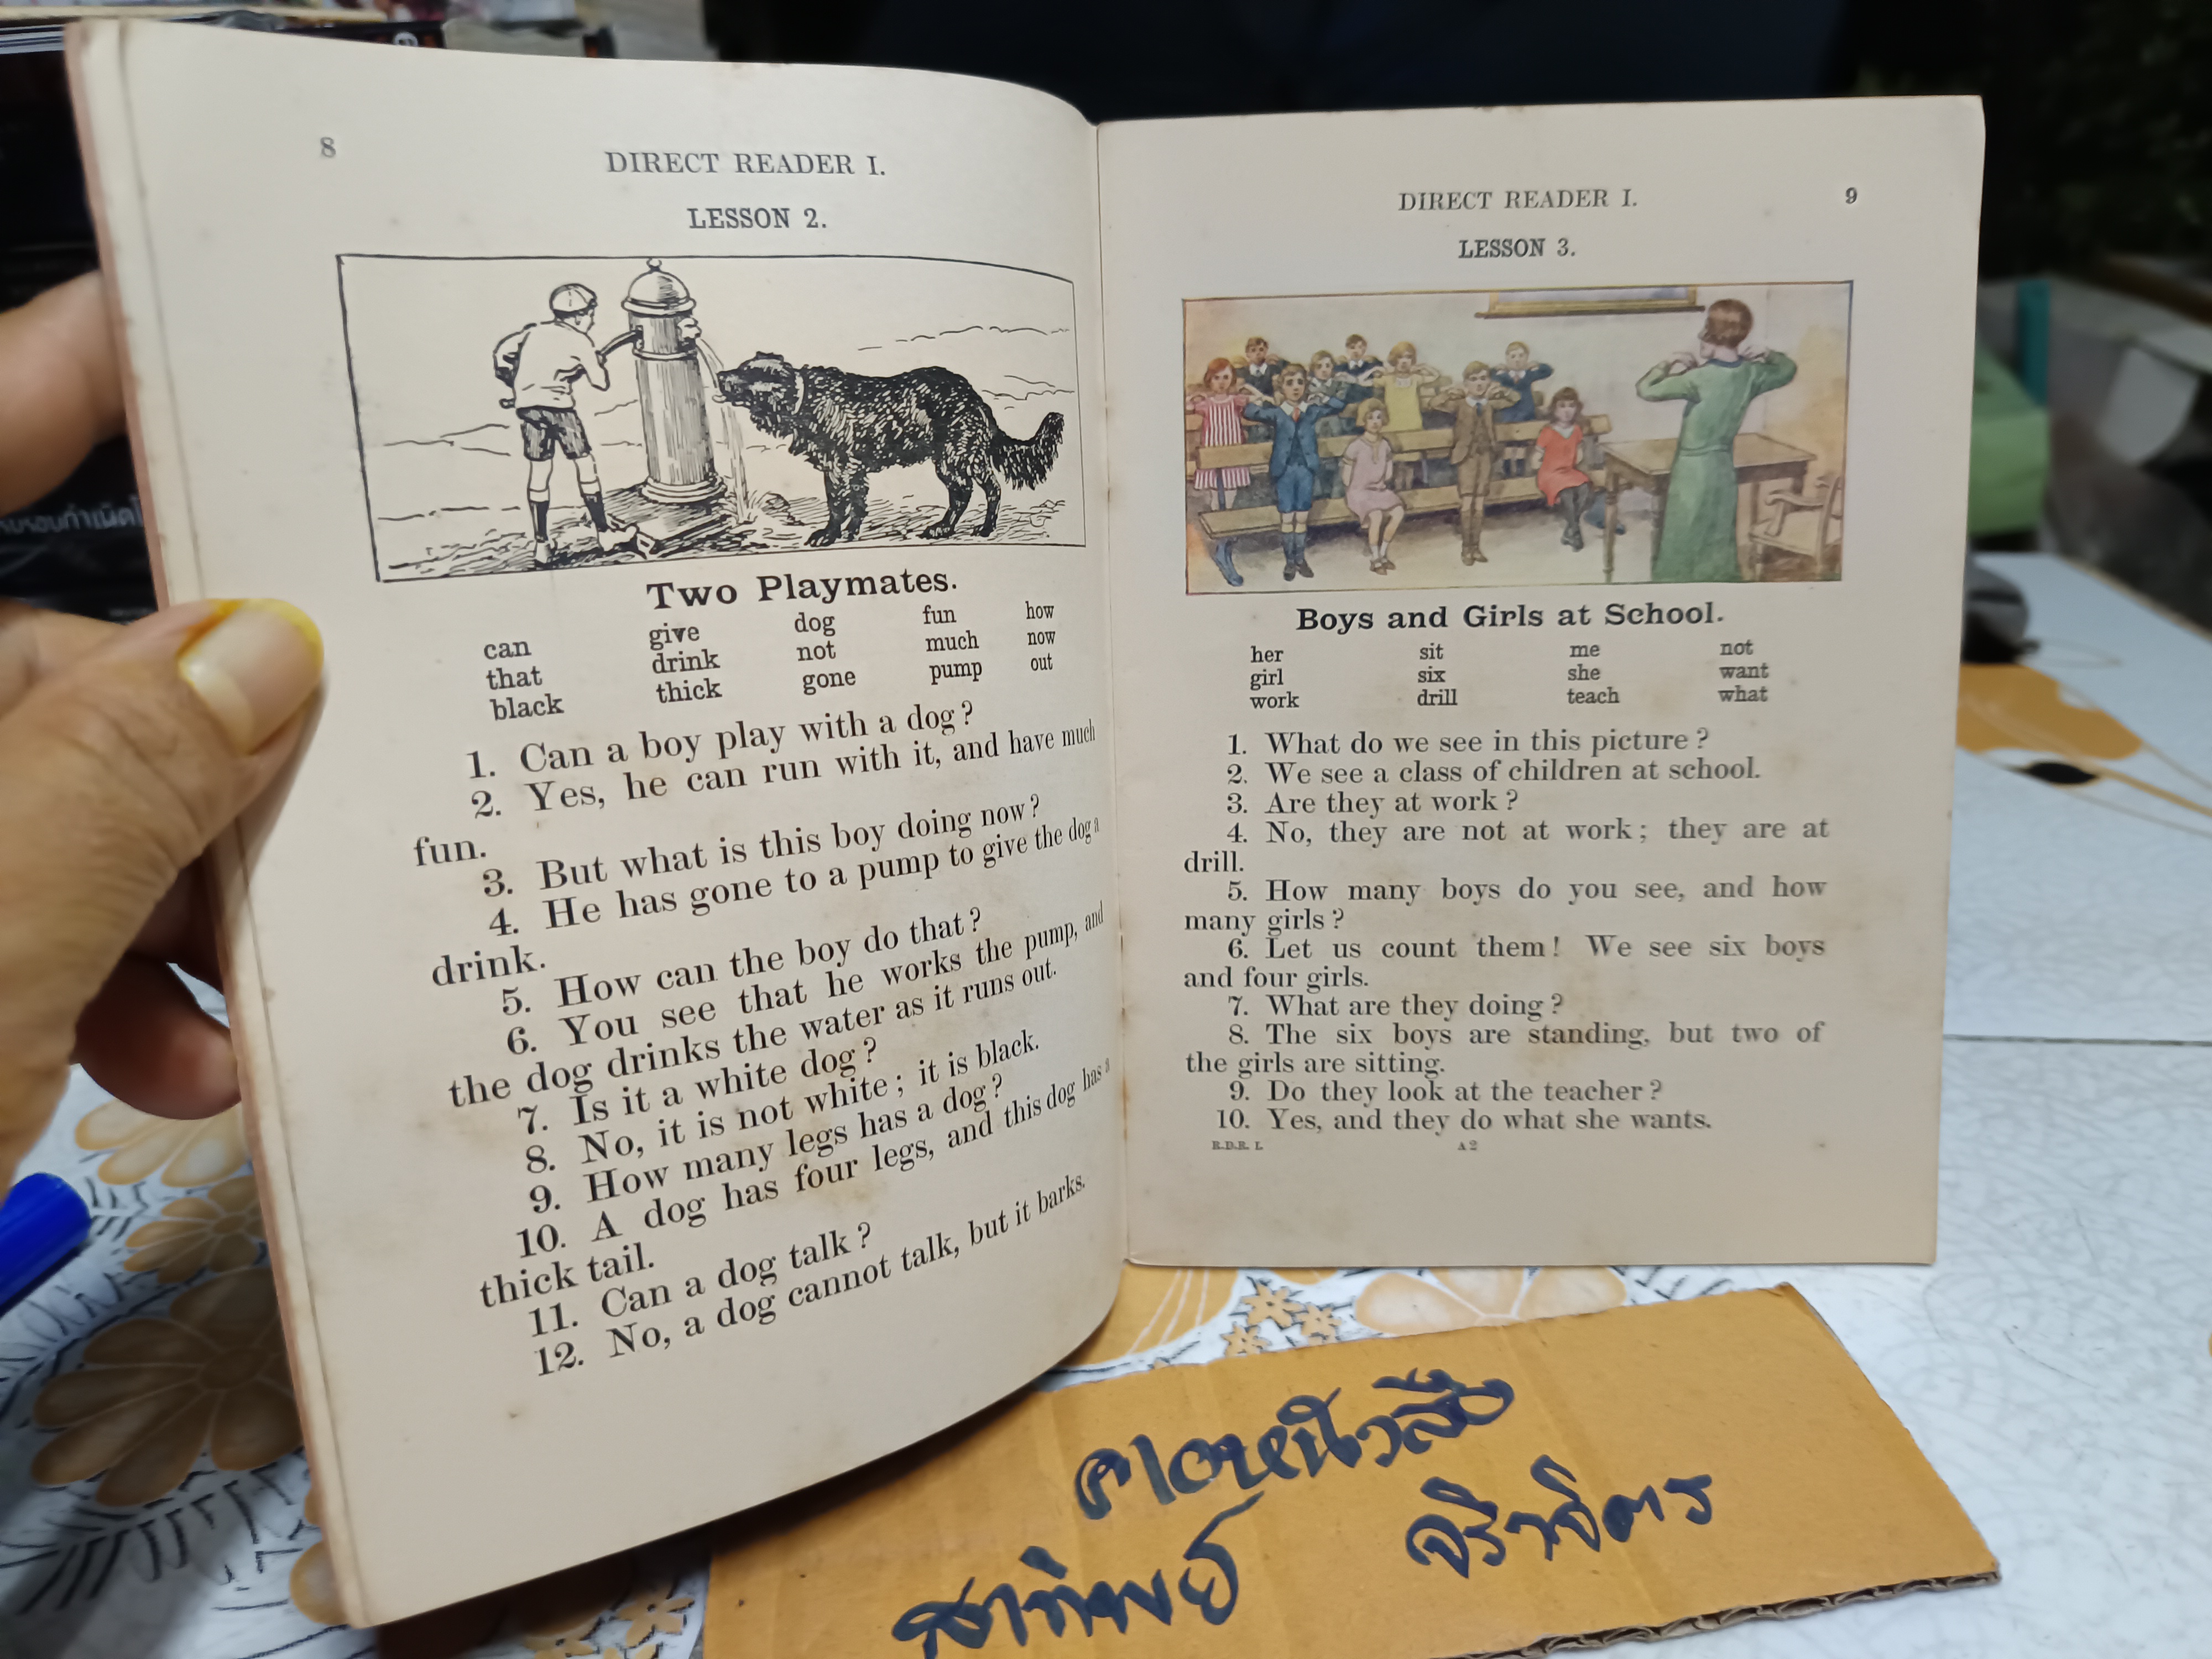 8
DIRECT READER I.
LESSON 2.
Two Playmates.
can give dog fun how
that drink not much now
black thick gone pump out
1. Can a boy play with a dog?
2. Yes, he can run with it, and have much
fun.
3. But what is this boy doing now?
4. He has gone to a pump to give the dog a
drink.
5. How can the boy do that?
6. You see that he works the pump, and
the dog drinks the water as it runs out.
7. Is it a white dog?
8. No, it is not white; it is black.
9. How many legs has a dog?
10. A dog has four legs, and this dog has a
thick tail.
11. Can a dog talk?
12. No, a dog cannot talk, but it barks.
DIRECT READER I. 9
LESSON 3.
Boys and Girls at School.
her sit me not
girl six she want
work drill teach what
1. What do we see in this picture?
2. We see a class of children at school.
3. Are they at work?
4. No, they are not at work; they are at
drill.
5. How many boys do you see, and how
many girls?
6. Let us count them! We see six boys
and four girls.
7. What are they doing?
8. The six boys are standing, but two of
the girls are sitting.
9. Do they look at the teacher?
10. Yes, and they do what she wants.
R.D.R. I. A 2